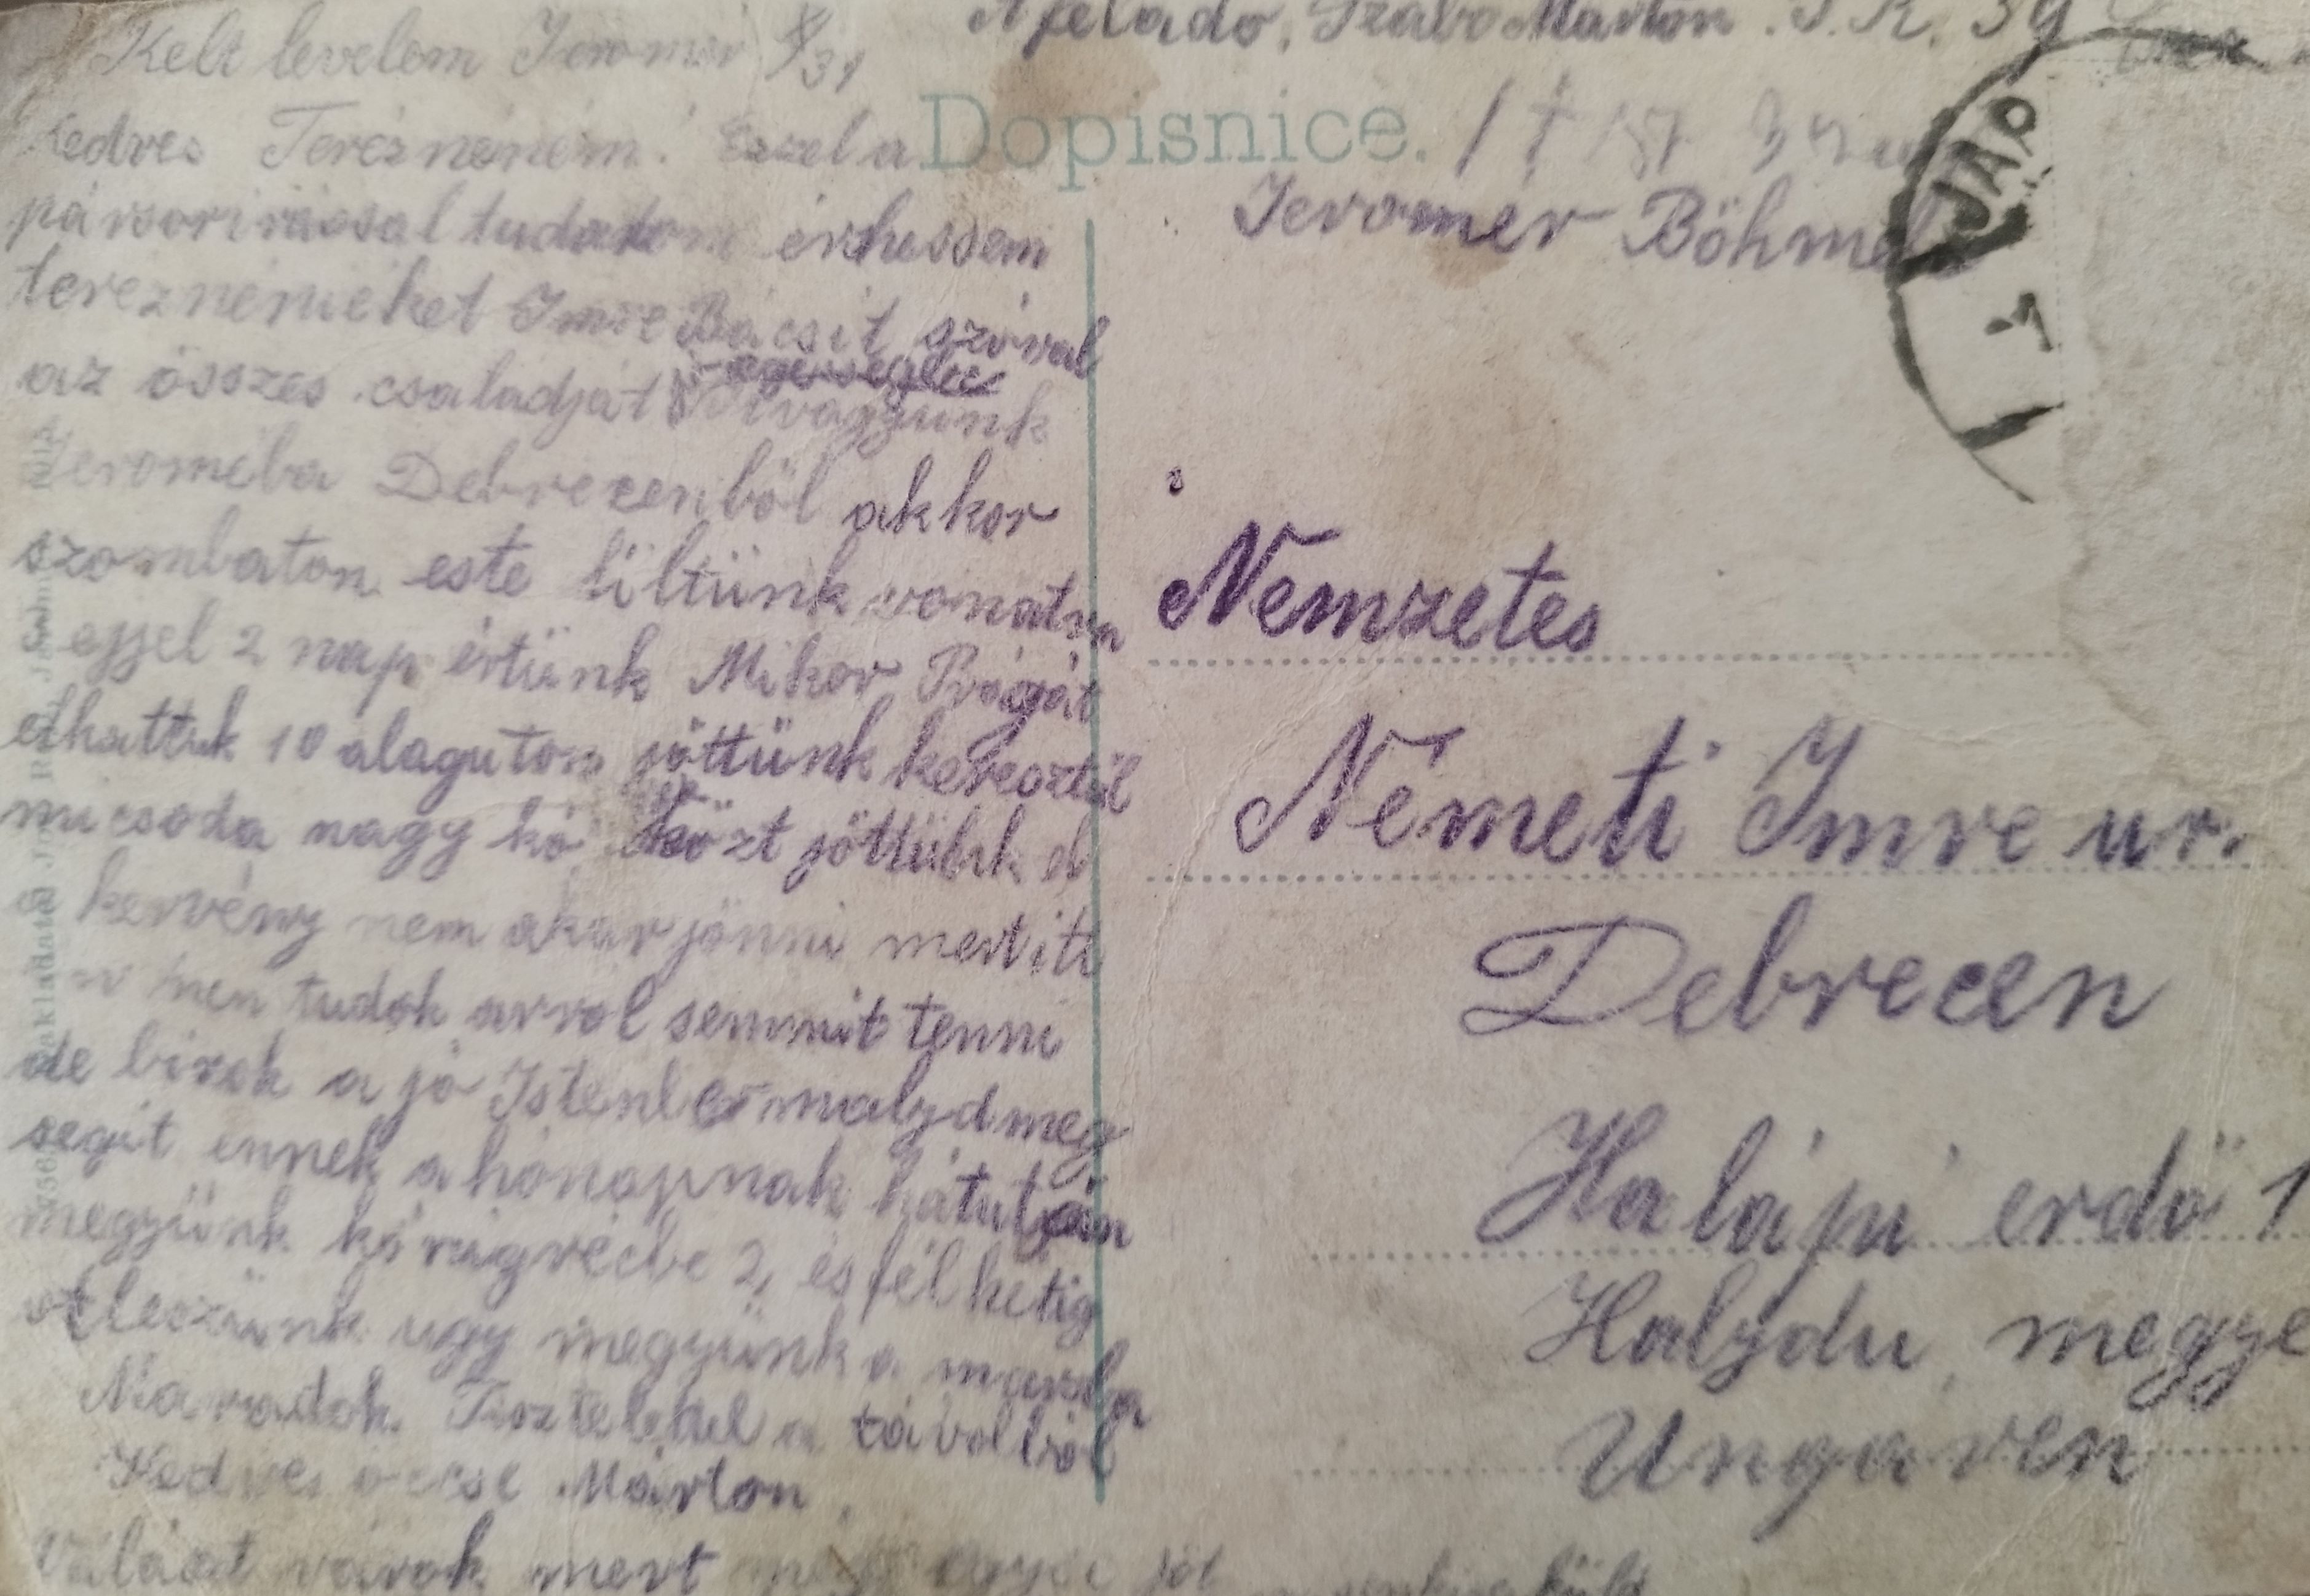 Kelt levelem Jeromér X/31
Kedves Teréz néném! Ezzel a
pársorirásosal tudatom érhessem
tereznénieket Imre Bácsit szóval
az összes családját egésségbe
vagyunk
Jeroméba Debreczenből akkor
szombaton este üiltünk vonatra
ejjel 2 nap értünk Mikor Prágát
elhattuk 10 alaguton jöttünk keresztül
micsoda nagy kő közt jöttünk el
a kervény nem akar jönni mert itt
nen tudok arrol semmit tenni
de bizok a jó Istenbe majd meg
segit ennek a hónapnak hátulján
megyünk 2, és fél hetig
ott leszünk ugy megyünk a
Maradok Tisztelettel a távolból
Kedves öccse Márton
Választ várok mert még jöt
Afelado, Szabo Marton. I. R. 39
Dopisnice.
Jeromér Böhmel
JAR
Nemzetes
Németi Imre ur.
Debrecen
Halápi erdő 1
Halydu megye
Ungaren